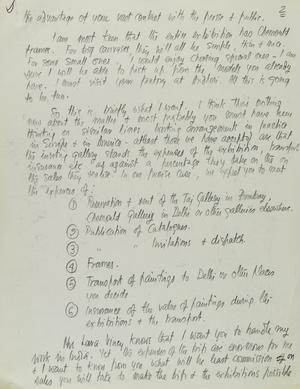 2
the advantage of your vast contact with the press & public.
I am most keen that the entire exhibition has Chemould
frames. For big canvases they'll all be simple, thin & nice.
For some small ones I would enjoy choosing special ones - I am
sure I will be able to pick up from the models you already
have. I must visit your factory at . All this is going
to be fun.
So this is briefly what I want. I think there's nothing
new about the matter & most probably you must have been
thinking on similar lines. Existing arrangements in practice
in Europe & in America - atleast those we have accepted are that
the inviting gallery stands the expenses of the exhibition, transport
insurance etc. as against a percentage they take on the on
the sales they realise. In our present case, we expect you to meet
the expenses of:
① Reservation & rent of the Taj Gallery in Bombay,
Chemould Gallery in Delhi or other galleries elsewhere.
② Publication of Catalogues.
③ " " Invitations & dispatch.
④ Frames.
⑤ Transport of paintings to Delhi or other places
you decide
⑥ Insurances of the value of paintings during the
exhibitions & the transport.
You know that I want you to handle my
work in India. Yet the expenses of the trip are enormous for me
& I want to know from you what will be least commission on
sales you will take to make the trip & the exhibitions possible